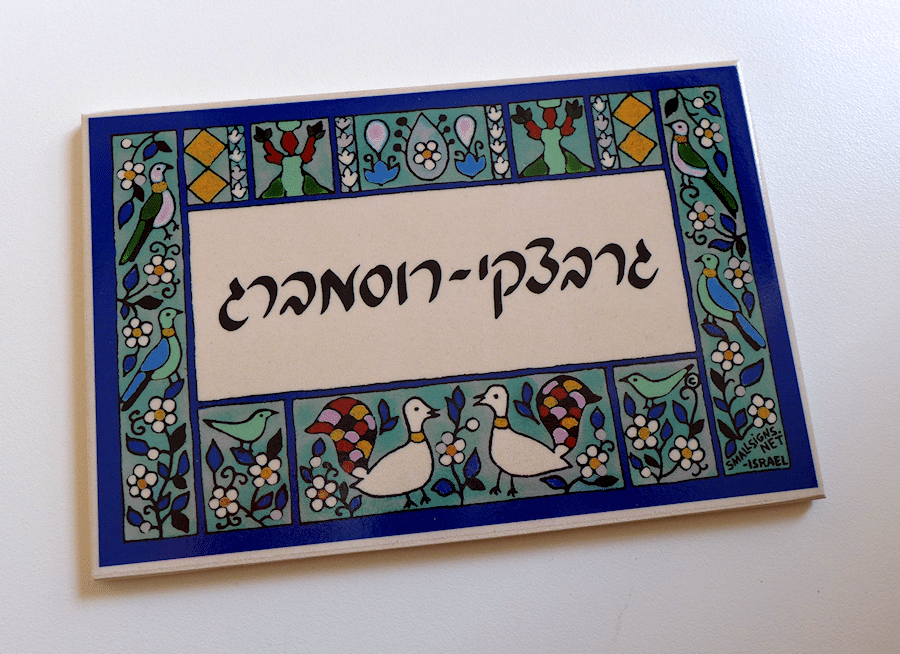 גרבצקי-רוסמברג
©
SMALLSIGNS.
NET
-ISRAEL